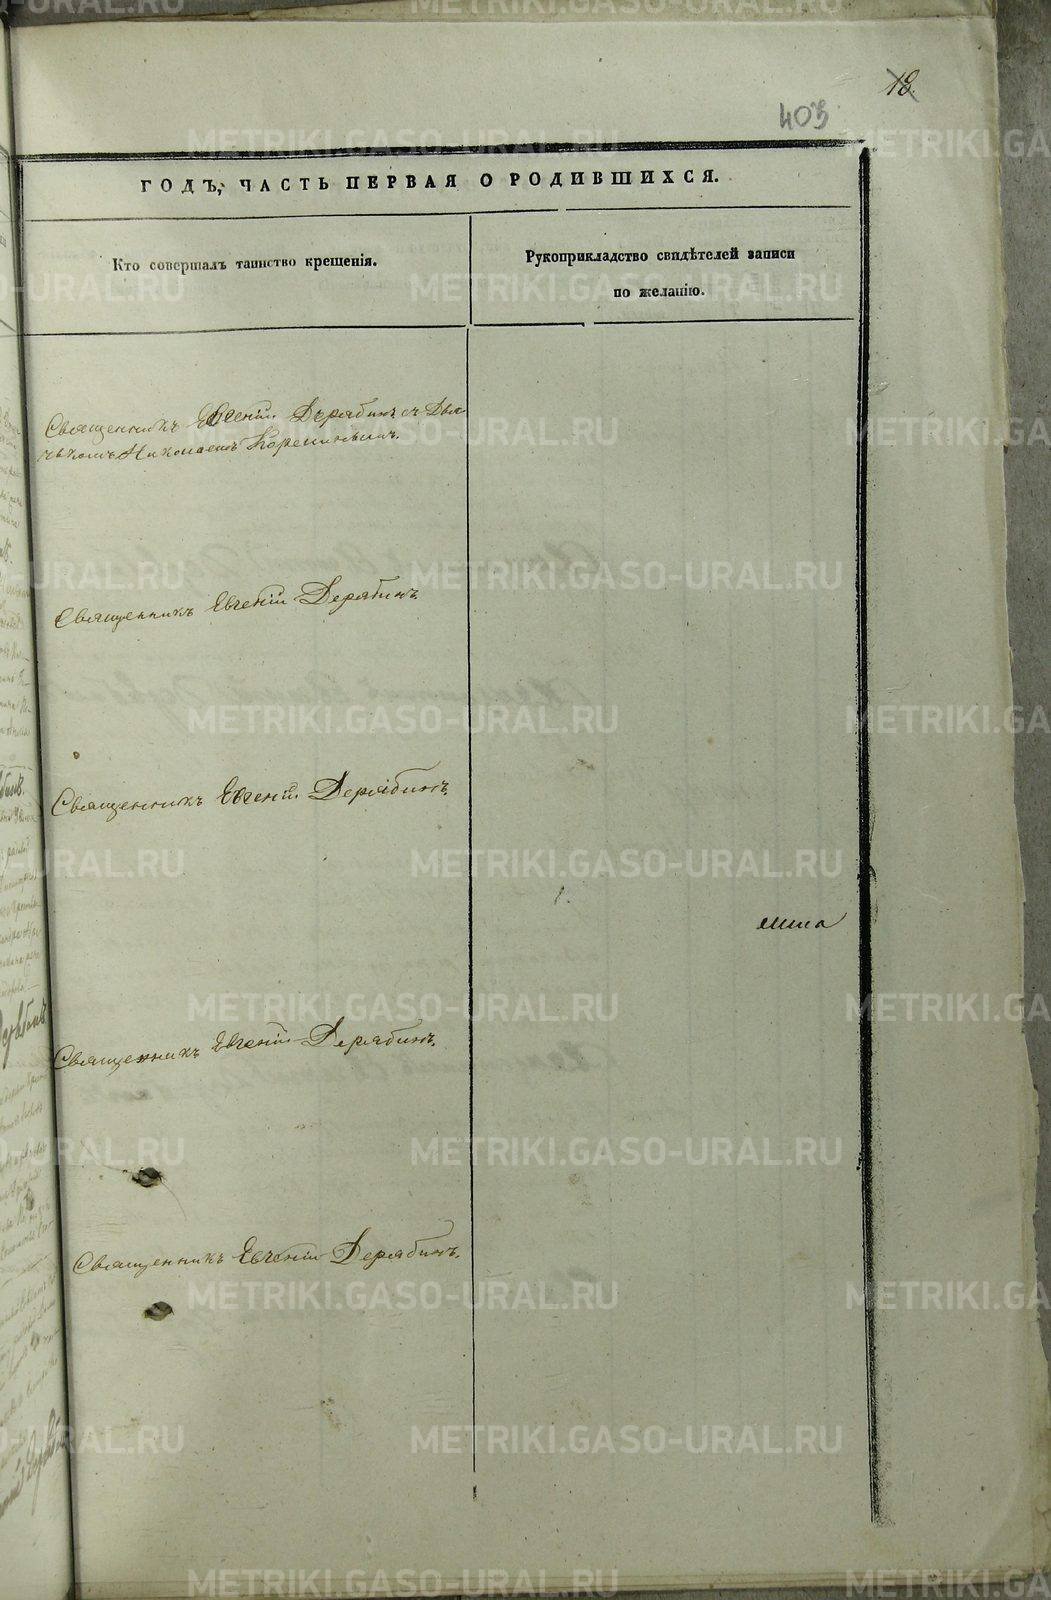 18.
403
ГОДЪ, ЧАСТЬ ПЕРВАЯ О РОДИВШИХСЯ.
Кто совершалъ таинство крещенія.
Рукоприкладство свидѣтелей записи
по желанію.
Священникъ Евгеній Дерябинъ съ Дья-
чкомъ Николаемъ
Священникъ Евгеній Дерябинъ
Священникъ Евгеній Дерябинъ.
Священникъ Евгеній Дерябинъ.
Священникъ Евгеній Дерябинъ.
METRIKI.GASO-URAL.RU